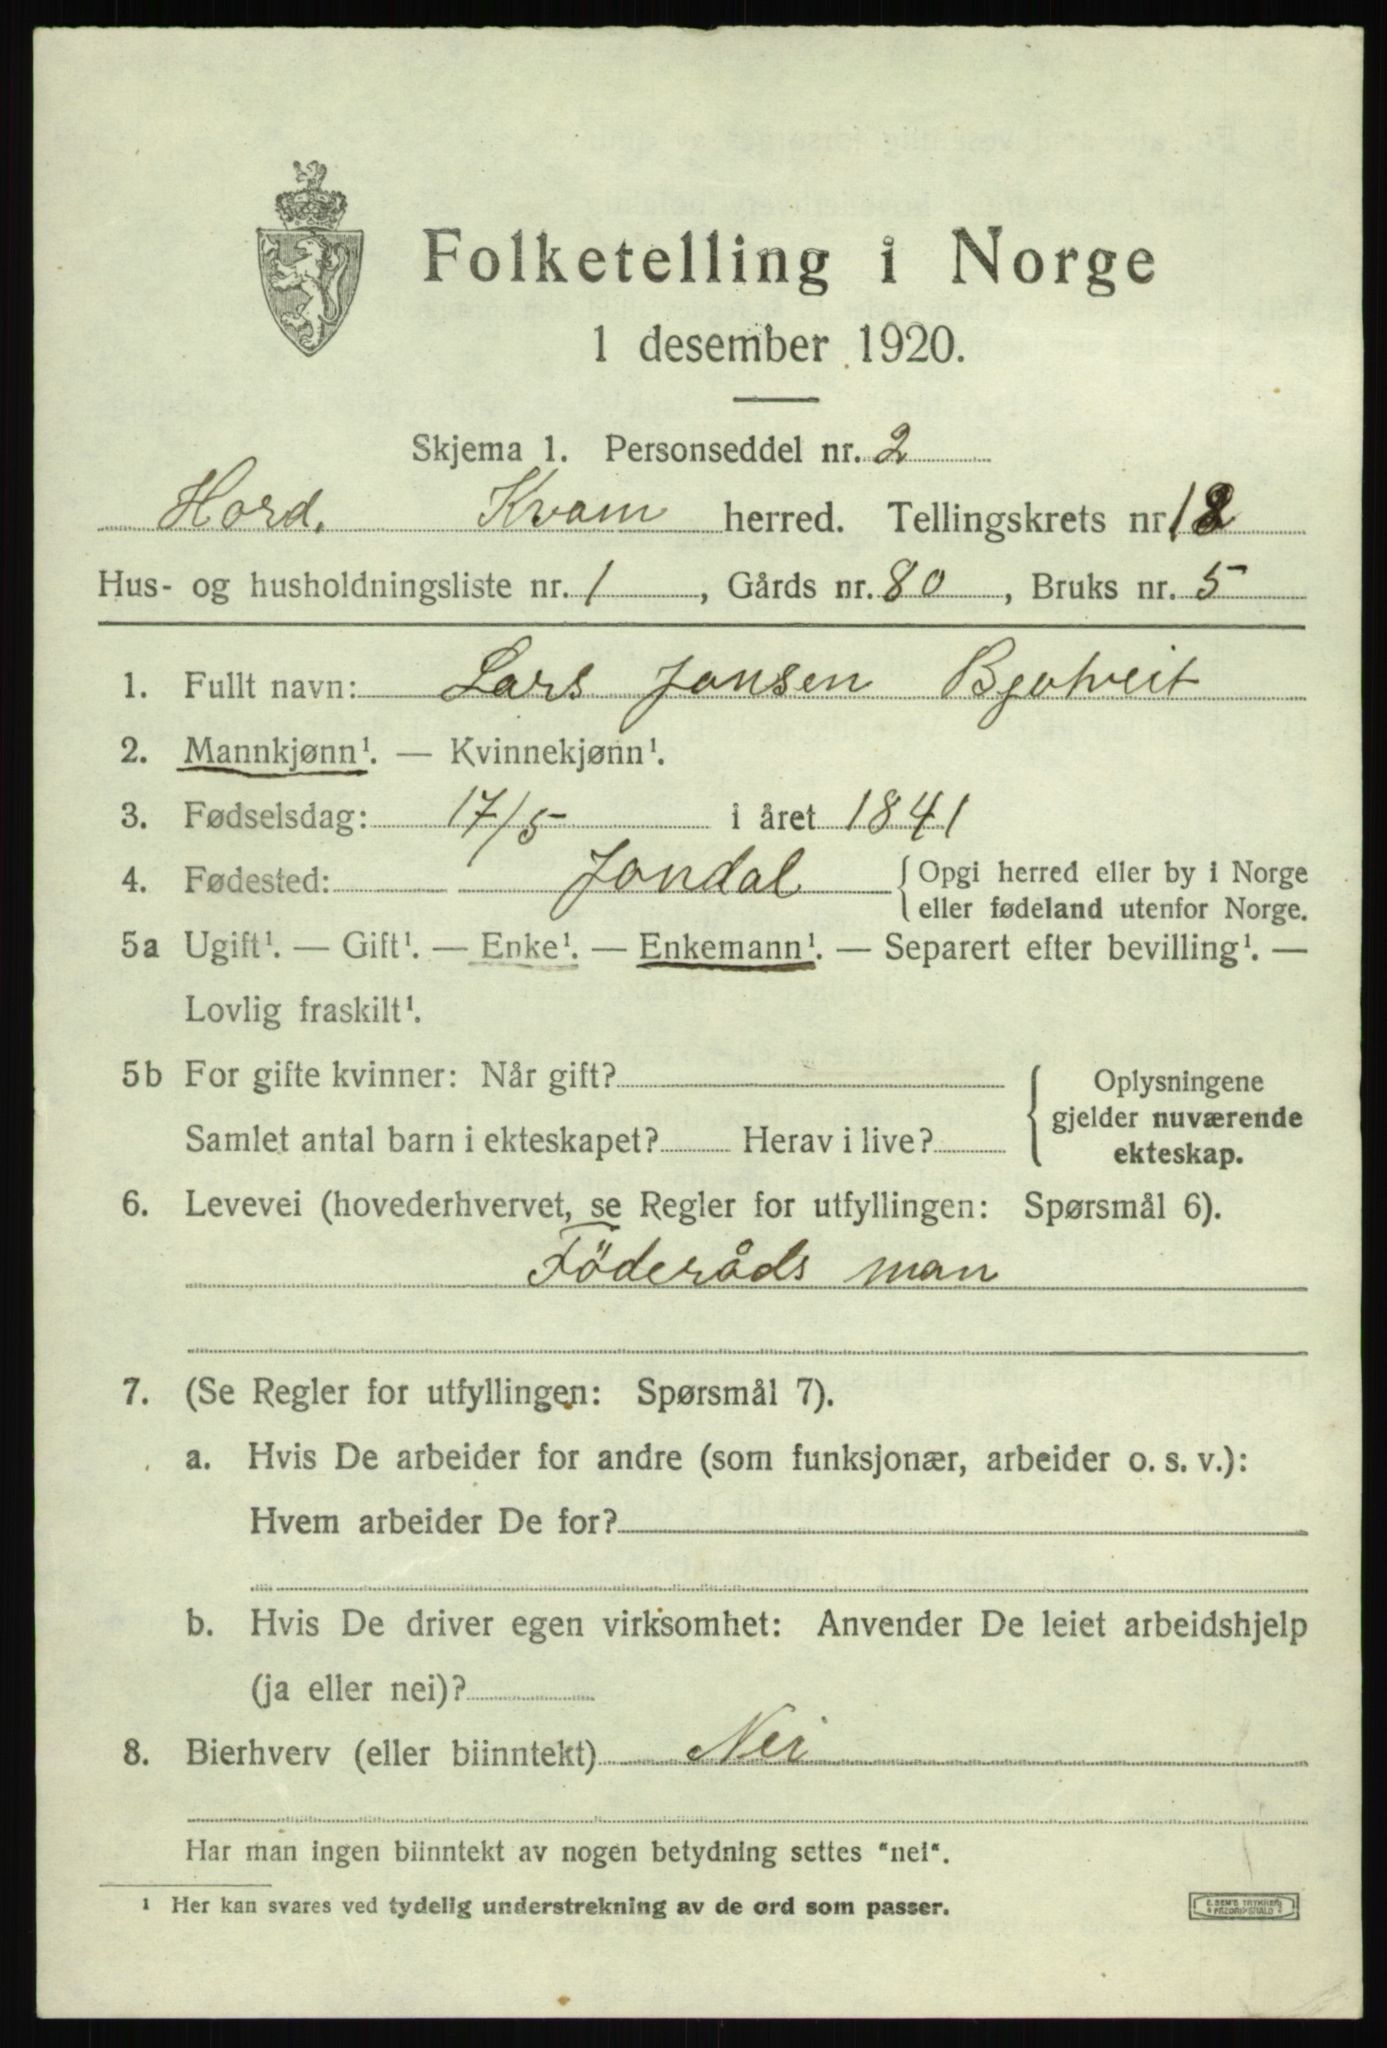 Folketelling i Norge
1 desember 1920.
Skjema 1. Personseddel nr. 2
Hord. Kvam herred. Tellingskrets nr 12
Hus- og husholdningsliste nr. 1, Gårds nr. 80, Bruks nr. 5
1. Fullt navn: Lars Jonsen Bjotveit
2. Mannkjønn¹. — Kvinnekjønn¹.
3. Fødselsdag: 17/5 i året 1841
4. Fødested: Jondal { Opgi herred eller by i Norge
eller fødeland utenfor Norge.
5a Ugift¹. — Gift¹. — Enke¹. — Enkemann¹. — Separert efter bevilling¹. —
Lovlig fraskilt¹.
5b For gifte kvinner: Når gift?
Samlet antal barn i ekteskapet? Herav i live?
Oplysningene
gjelder nuværende
ekteskap.
6. Levevei (hovederhvervet, se Regler for utfyllingen: Spørsmål 6).
Föderåds man
7. (Se Regler for utfyllingen: Spørsmål 7).
a. Hvis De arbeider for andre (som funksjonær, arbeider o. s. v.):
Hvem arbeider De for?
b. Hvis De driver egen virksomhet: Anvender De leiet arbeidshjelp
(ja eller nei)?
8. Bierhverv (eller biinntekt) Nei
Har man ingen biinntekt av nogen betydning settes "nei".
¹ Her kan svares ved tydelig understrekning av de ord som passer.